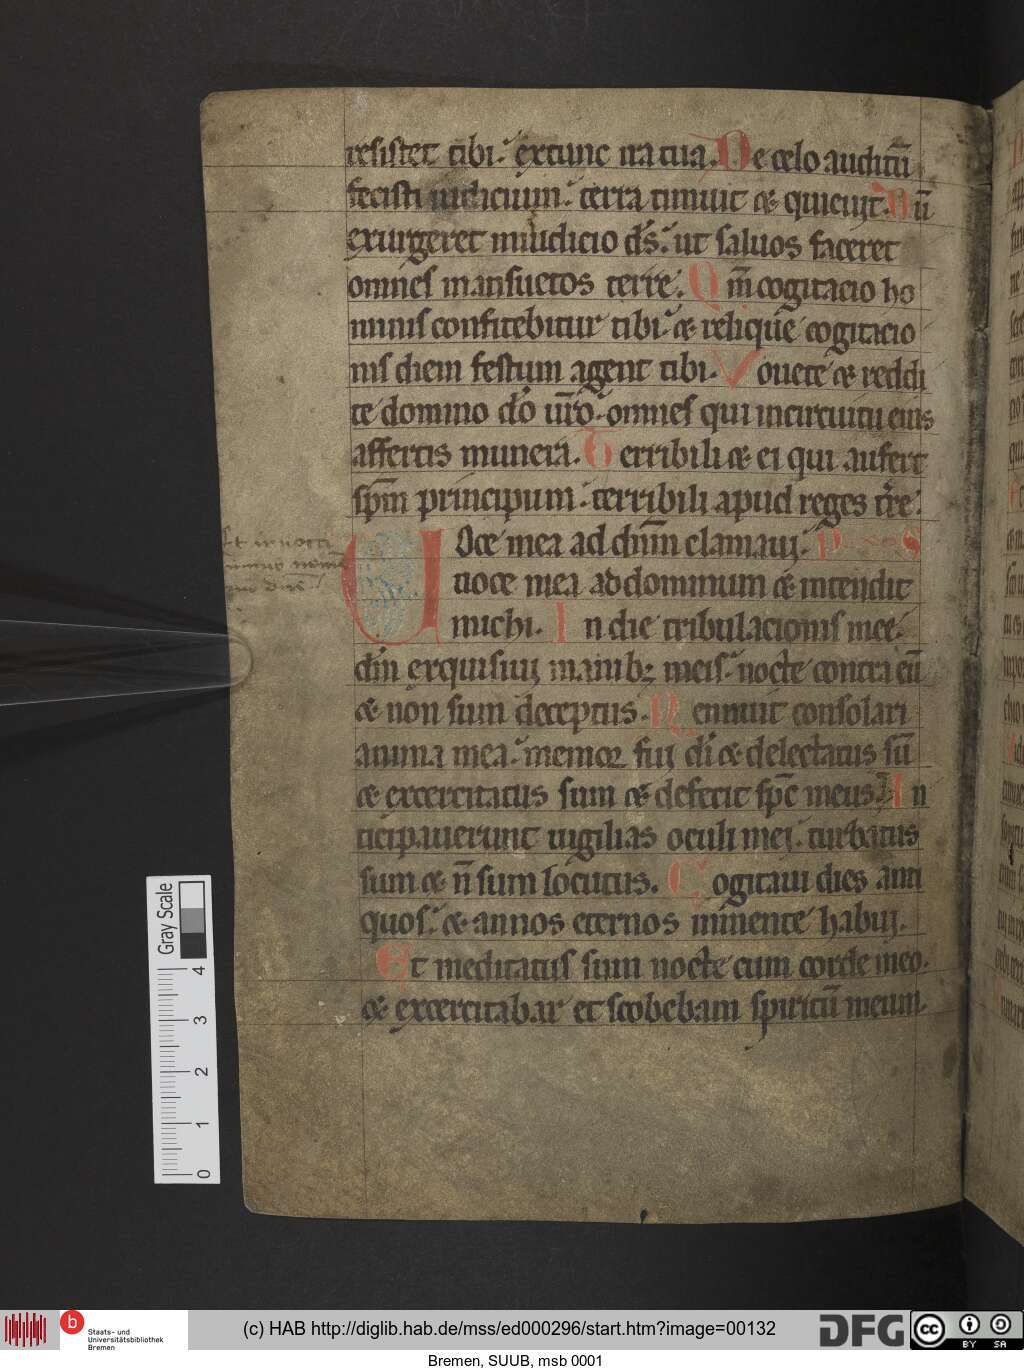 resistet tibi. extunc ira tua. De celo auditū
fecisti iudicium. terra timuit & quieuit. Cū
exurgeret iniudicio ds̄. ut saluos faceret
omnes mansuetos terre. Qm̄ cogitacio ho
minis confitebitur tibi. & relique cogitacio
nis diem festum agent tibi. Vouete & reddi
te domino dō ur̄o. omnes qui incircuitu eius
affertis munera. Terribili & ei qui aufert
spm̄ principum. terribili apud reges tr̄e.
Uoce mea ad dnm̄ clamaui.
uoce mea ad dominum & intendit
michi. In die tribulacionis mee.
dm̄ exquisiui manibꝫ meis. nocte contra eū
& non sum deceptus. Rennuit consolari
anima mea. memor fui di & delectatus sū
& exercitatus sum & defecit spc̄ meus. An
ticipauerunt uigilias oculi mei. turbatus
sum & n̄ sum locutus. Cogitaui dies anti
quos. & annos eternos inmente habui.
Et meditatus sum nocte cum corde meo.
& exercitabar et scobebam spiritū meum.
Gray Scale
4
3
2
1
0
b
Staats- und
Universitätsbibliothek
Bremen
(c) HAB http://diglib.hab.de/mss/ed000296/start.htm?image=00132
DFG
cc
BY SA
Bremen, SUUB, msb 0001